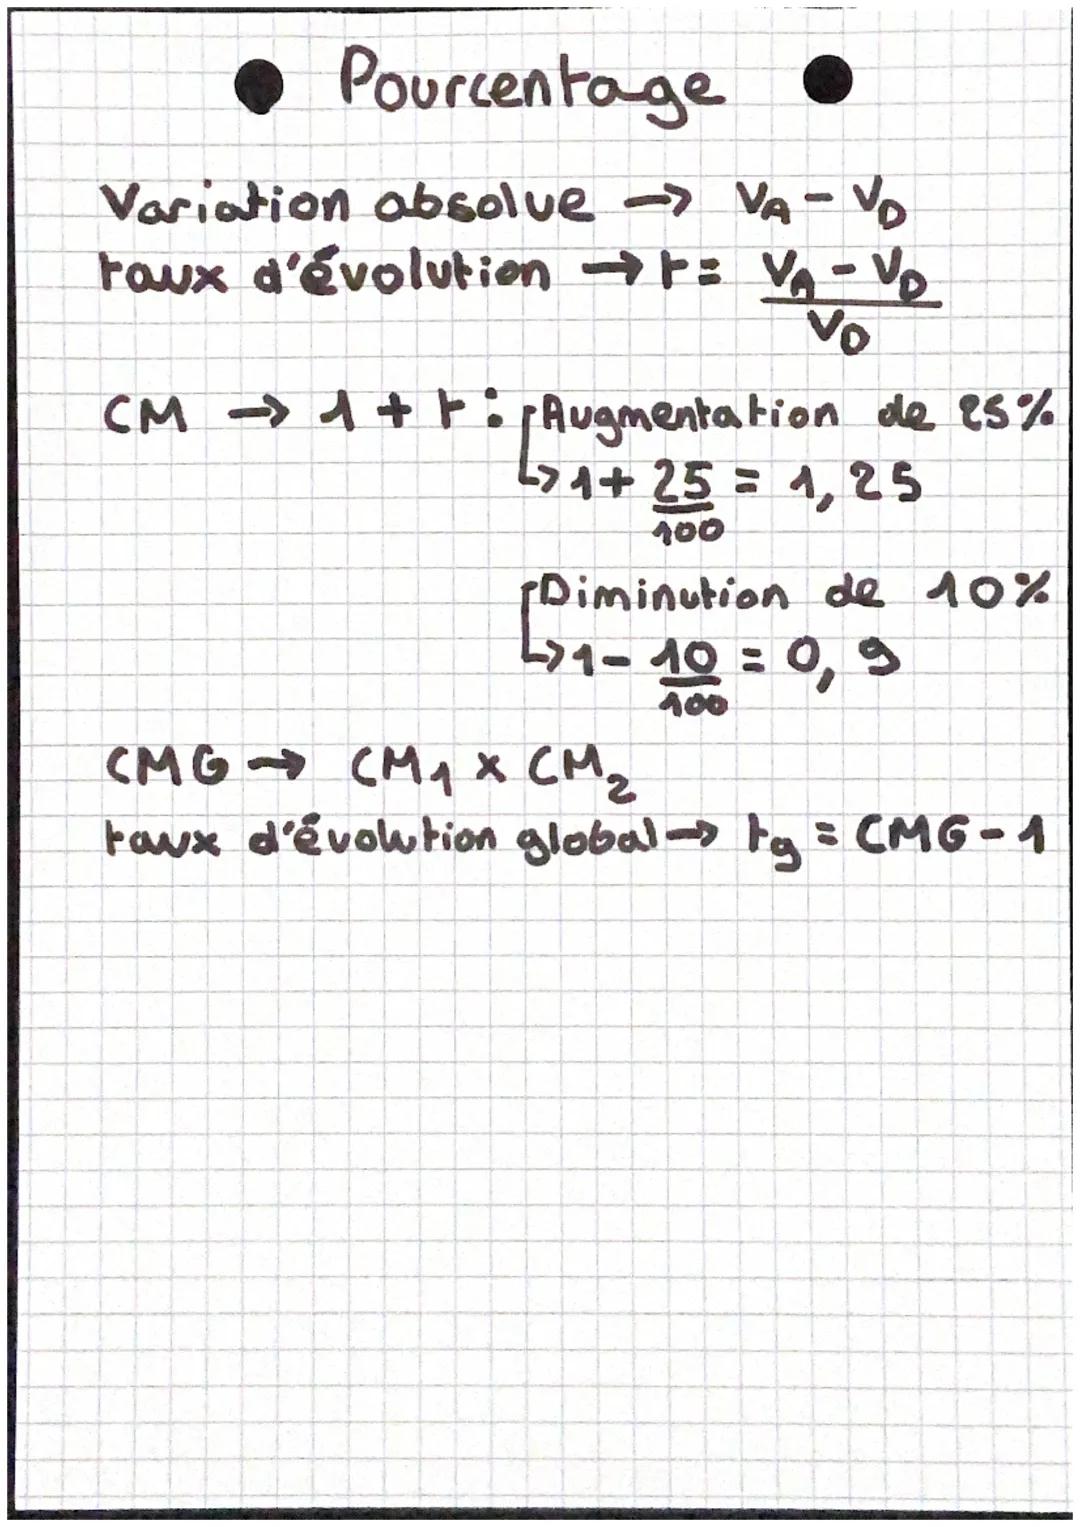 Pourcentage
Variation absolue → VA - VD
taux d'évolution → t = VA - VD
VD
CM → 1 + t : Augmentation de 25%
↳ 1 + 25/100 = 1,25
Diminution de 10%
↳ 1 - 10/100 = 0,9
CMG → CM1 x CM2
taux d'évolution global → tg = CMG - 1